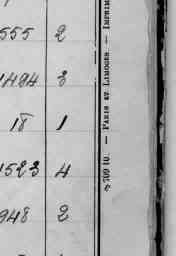 555 2
1494 3
18 1
1523 4
948 2
70910. — PARIS ET LIMOGES. — IMPRIM